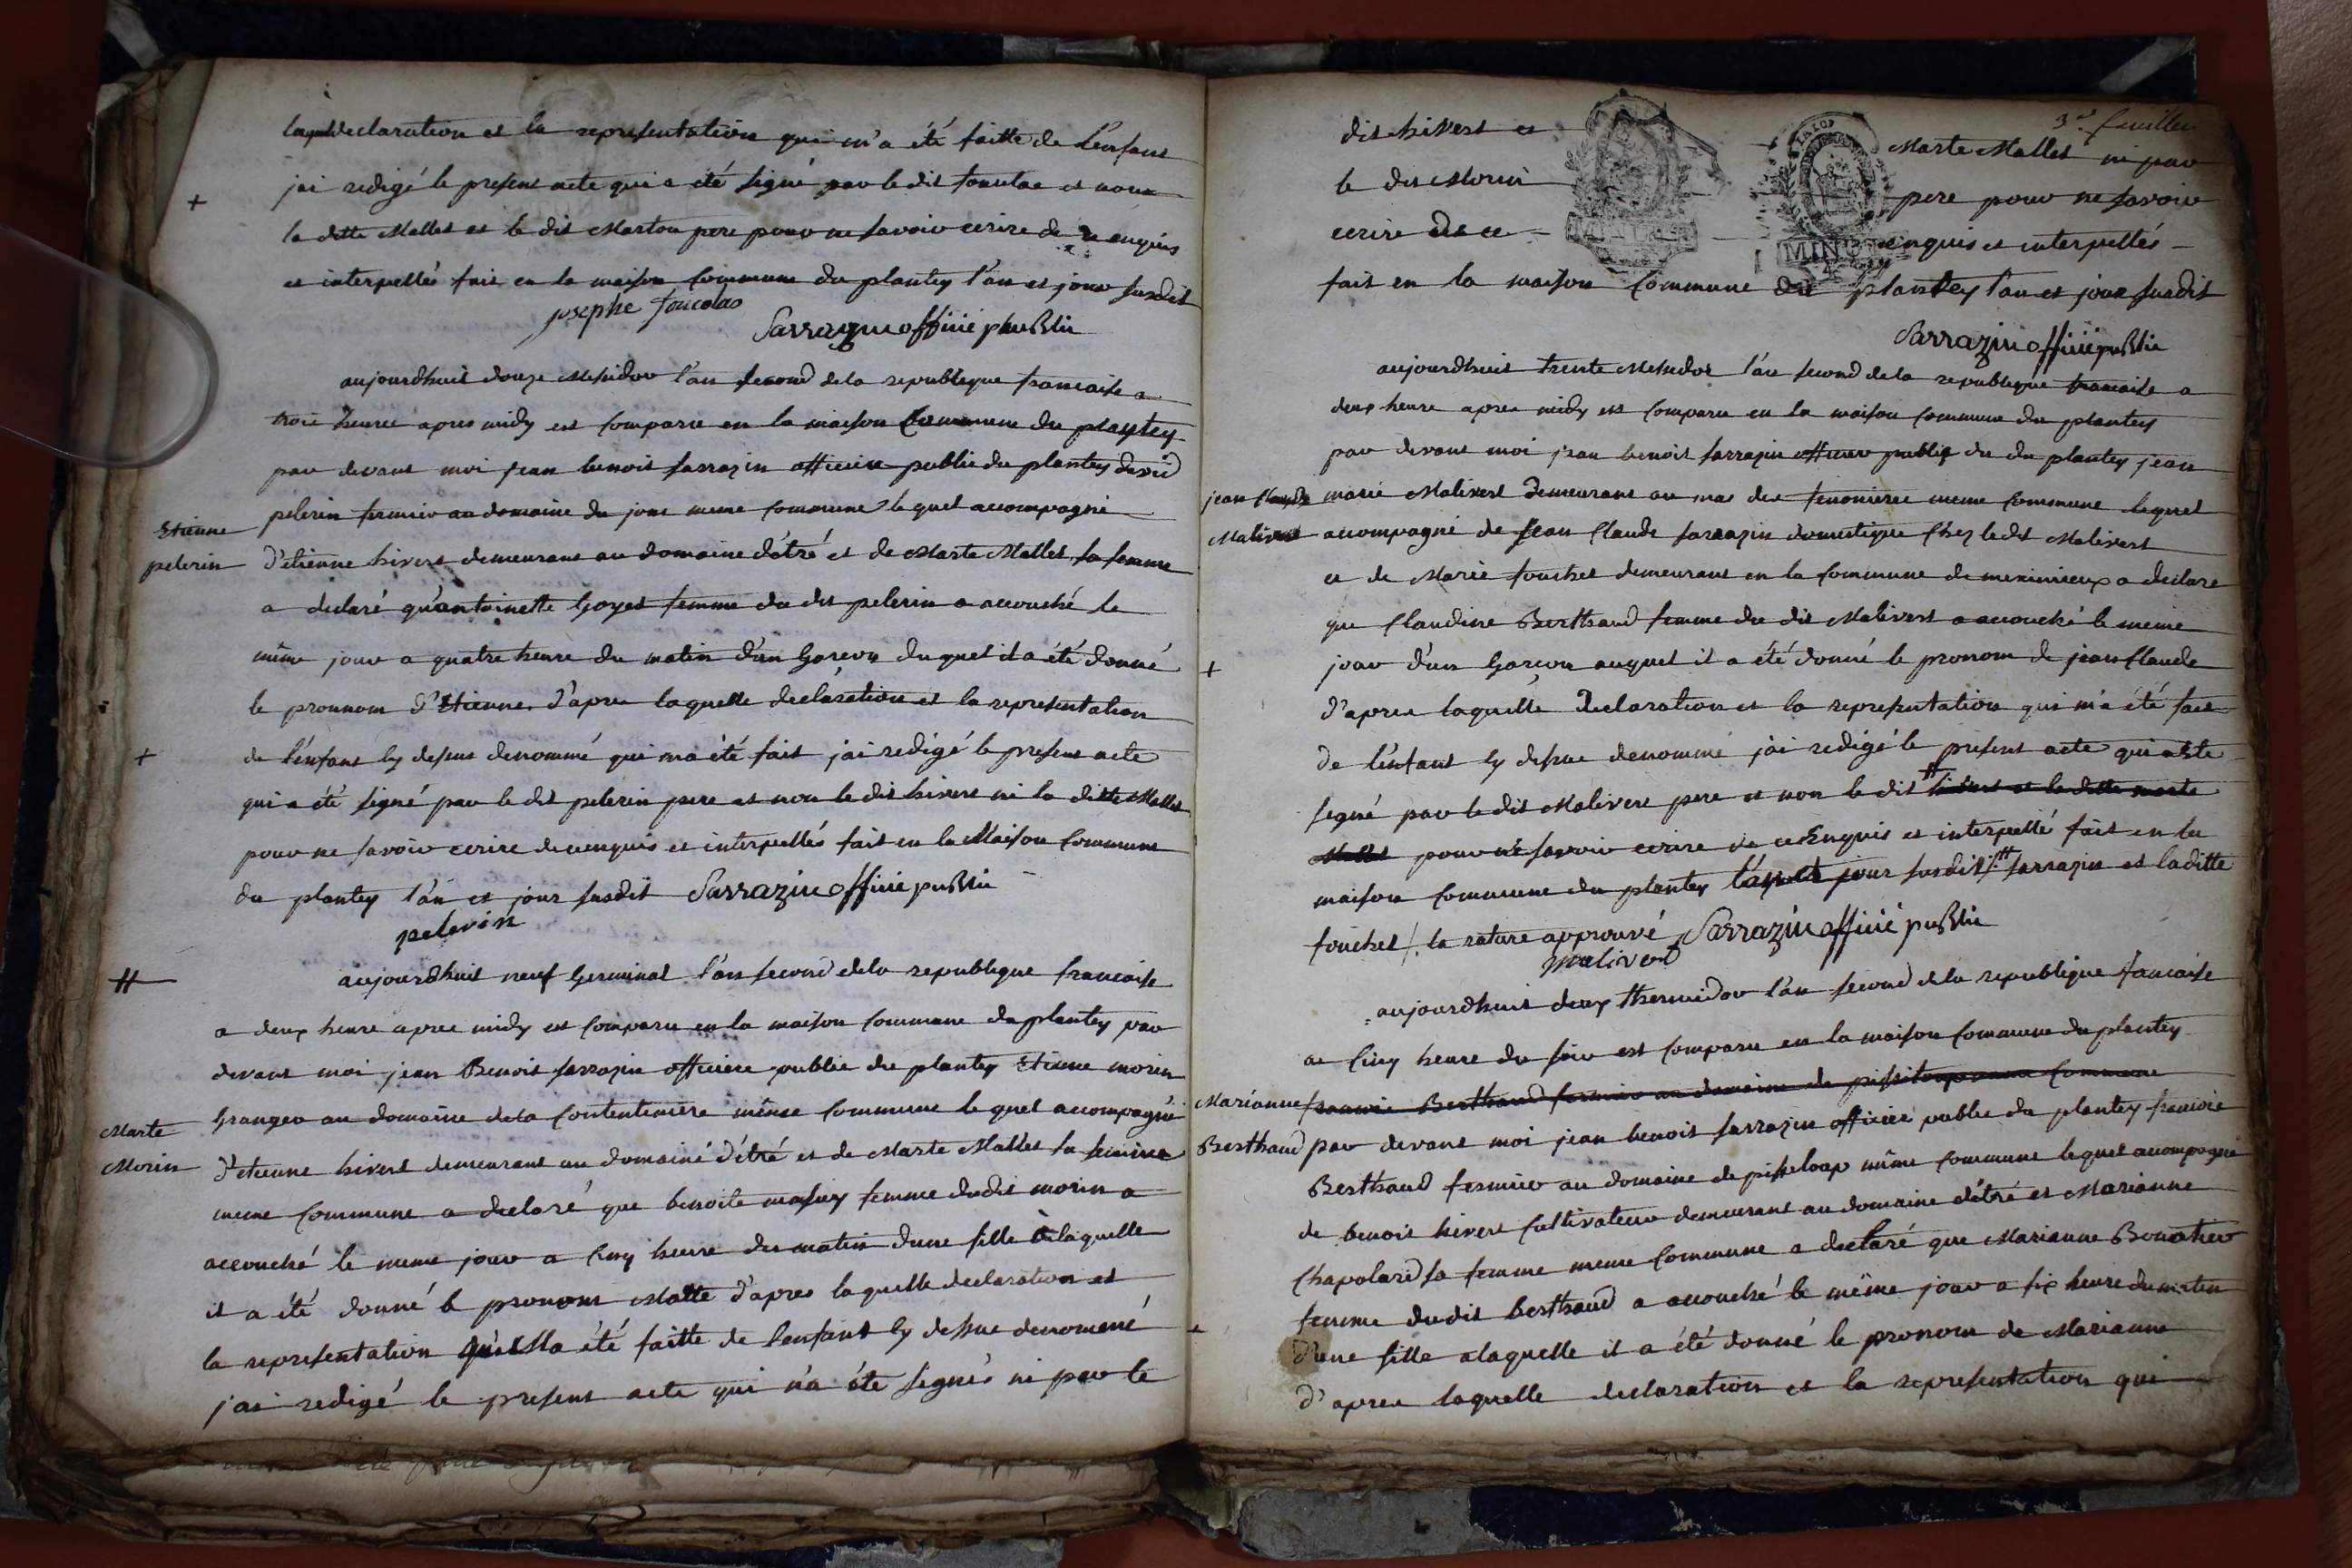 laquel declaration et la representation qui m'a été faitte de l'enfant
jai redigé le present acte qui a été signé par le dit foucolas et non
la ditte Mallet et le dit Marton pere pour ne savoir ecrire de ce enquis
et interpellés fait en la maison Commune du plantey l'an et jour susdit
josephe foucolas
Sarrazin officié publiu
aujourdhuit douze Messidor l'an second de la republique francaise a
trois heures apres midy est Comparu en la maison Commune du plantey
par devant moi jean benoit sarrazin officiere public du plantey david
Etienne
pelerin
pelerin fermier au domaine du jonc meme Commune le quel accompagné
d'etienne hivert demeurant au domaine d'étré et de Marte Mallet sa femme
a declaré qu'antoinette Goyet femme du dit pelerin a accouché le
même jour a quatre heure du matin d'un Garcon du quel il a été donné
le pronnom d'Etienne d'apres laquelle declaration et la representation
de l'enfant cy desus denommé qui ma été fait jai redigé le present acte
qui a été signé par le dit pelerin pere et non le dit hivert ni la ditte Mallet
pour ne savoir ecrire de ce enquis et interpellés fait en la Maison Commune
du plantey l'an et jour susdit Sarrazin officié publiu
pelerin
aujourdhuit neuf Germinal l'an second de la republique francaise
a deux heure apres midy est Comparu en la maison Commune du plantey par
devant moi jean Benoit sarrazin officiere public du plantey Etienne morin
Marte
Morin
Granger au domaine de la Contentiniere même Commune le quel accompagné
d'etienne hivert demeurant au domaine d'étré et de Marte Mallet sa femme
meme Commune a declaré que benoite masuy femme dudit morin a
accouché le meme jour a Cinq heure du matin dune fille a laquelle
il a été donné le pronom Matte d'apres laquelle declaration et
la representation qui Ma été faitte de l'enfant cy dessus denommé
j'ai redigé le present acte qui n'a été signés ni par le
3e feuillet
dit hivert et Marte Mallet ni par
le dit Morin pere pour ne savoir
ecrire de ce enquis et interpellés
fait en la maison Commune du plantey l'an et jour susdit
Sarrazin officié publiu
aujourdhuit trente Messidor l'an second de la republique francaise a
deux heure apres midy est Comparu en la maison Commune du plantey
par devant moi jean benoit sarrazin officier publiq du du plantey jean
jean Claude
Malivert
marie Malivert demeurant au mas des fenonieres meme Commune lequel
accompagné de jean Claude sarrazin domestique Chez ledit Malivert
et de Marie fouchet demeurant en la Commune de meximieux a declare
que Claudine Berthaud femme du dit Malivert a accouché le meme
jour d'un Garcon auquel il a été donné le pronom de jean Claude
d'apres laquelle declaration et la representation qui m'a été fait
de l'enfant cy dessus denommé jai redigé le present acte qui a ete
signé par le dit Malivert pere et non le dit # hivert et la ditte marte
Mallet pour ne savoir ecrire de ce Enquis et interpellé fait en la
maison Commune du plantey l'an et jour susdit # sarrazin et laditte
fouchet /. la rature approuvé Sarrazin officié publiu
malivert
aujourdhuit deux thermidor l'an second de la republique francaise
a Cinq heure du soir est Comparu en la maison Commune du plantey
Marianne
Berthaud
francois Berthaud fermier au domaine de pisseloup meme Commune
par devant moi jean benoit sarrazin officiere public du plantey francois
Berthaud fermier au domaine de pisseloup même Commune lequel accompagné
de benoit hivert Cultivateur demeurant au domaine d'étré et Marianne
Chapolard sa femme meme Commune a declaré que Marianne Bonatier
femme dudit berthaud a accouché le même jour a six heure du matin
d'une fille alaquelle il a été donné le pronom de Marianne
d'apres laquelle declaration et la representation qui